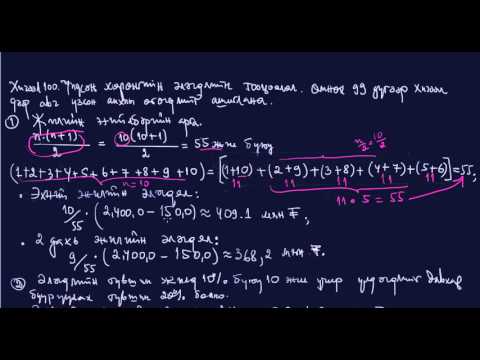 Хичээл 100. Үндсэн хөрөнгийн элэгдлийн тооцоолол. Өмнөх 99 дүгээр хичээл
дээр авч үзсэн анхны өгөгдлийг ашиглана.
① Жилийн нийлбэрийн арга.
n·(n+1)/2 = 10(10+1)/2 = 55 жил буюу n/2=10/2
(1+2+3+4+5+6+7+8+9+10) = [(1+10)+(2+9)+(3+8)+(4+7)+(5+6)]=55,
n=10 11 11 11 11 11
11 • 5 = 55
• Эхний жилийн элэгдэл:
10/55 · (2,400,0 – 150,0) ≈ 409.1 мян ₮,
• 2 дахь жилийн элэгдэл:
9/55 · (2,400,0 – 150,0) ≈ 368,2 мян ₮.
② Элэгдлийн түвшин жилд 10% буюу 10 жил учир үлдэгдлийг давхар
бууруулах түвшин 20% болно.